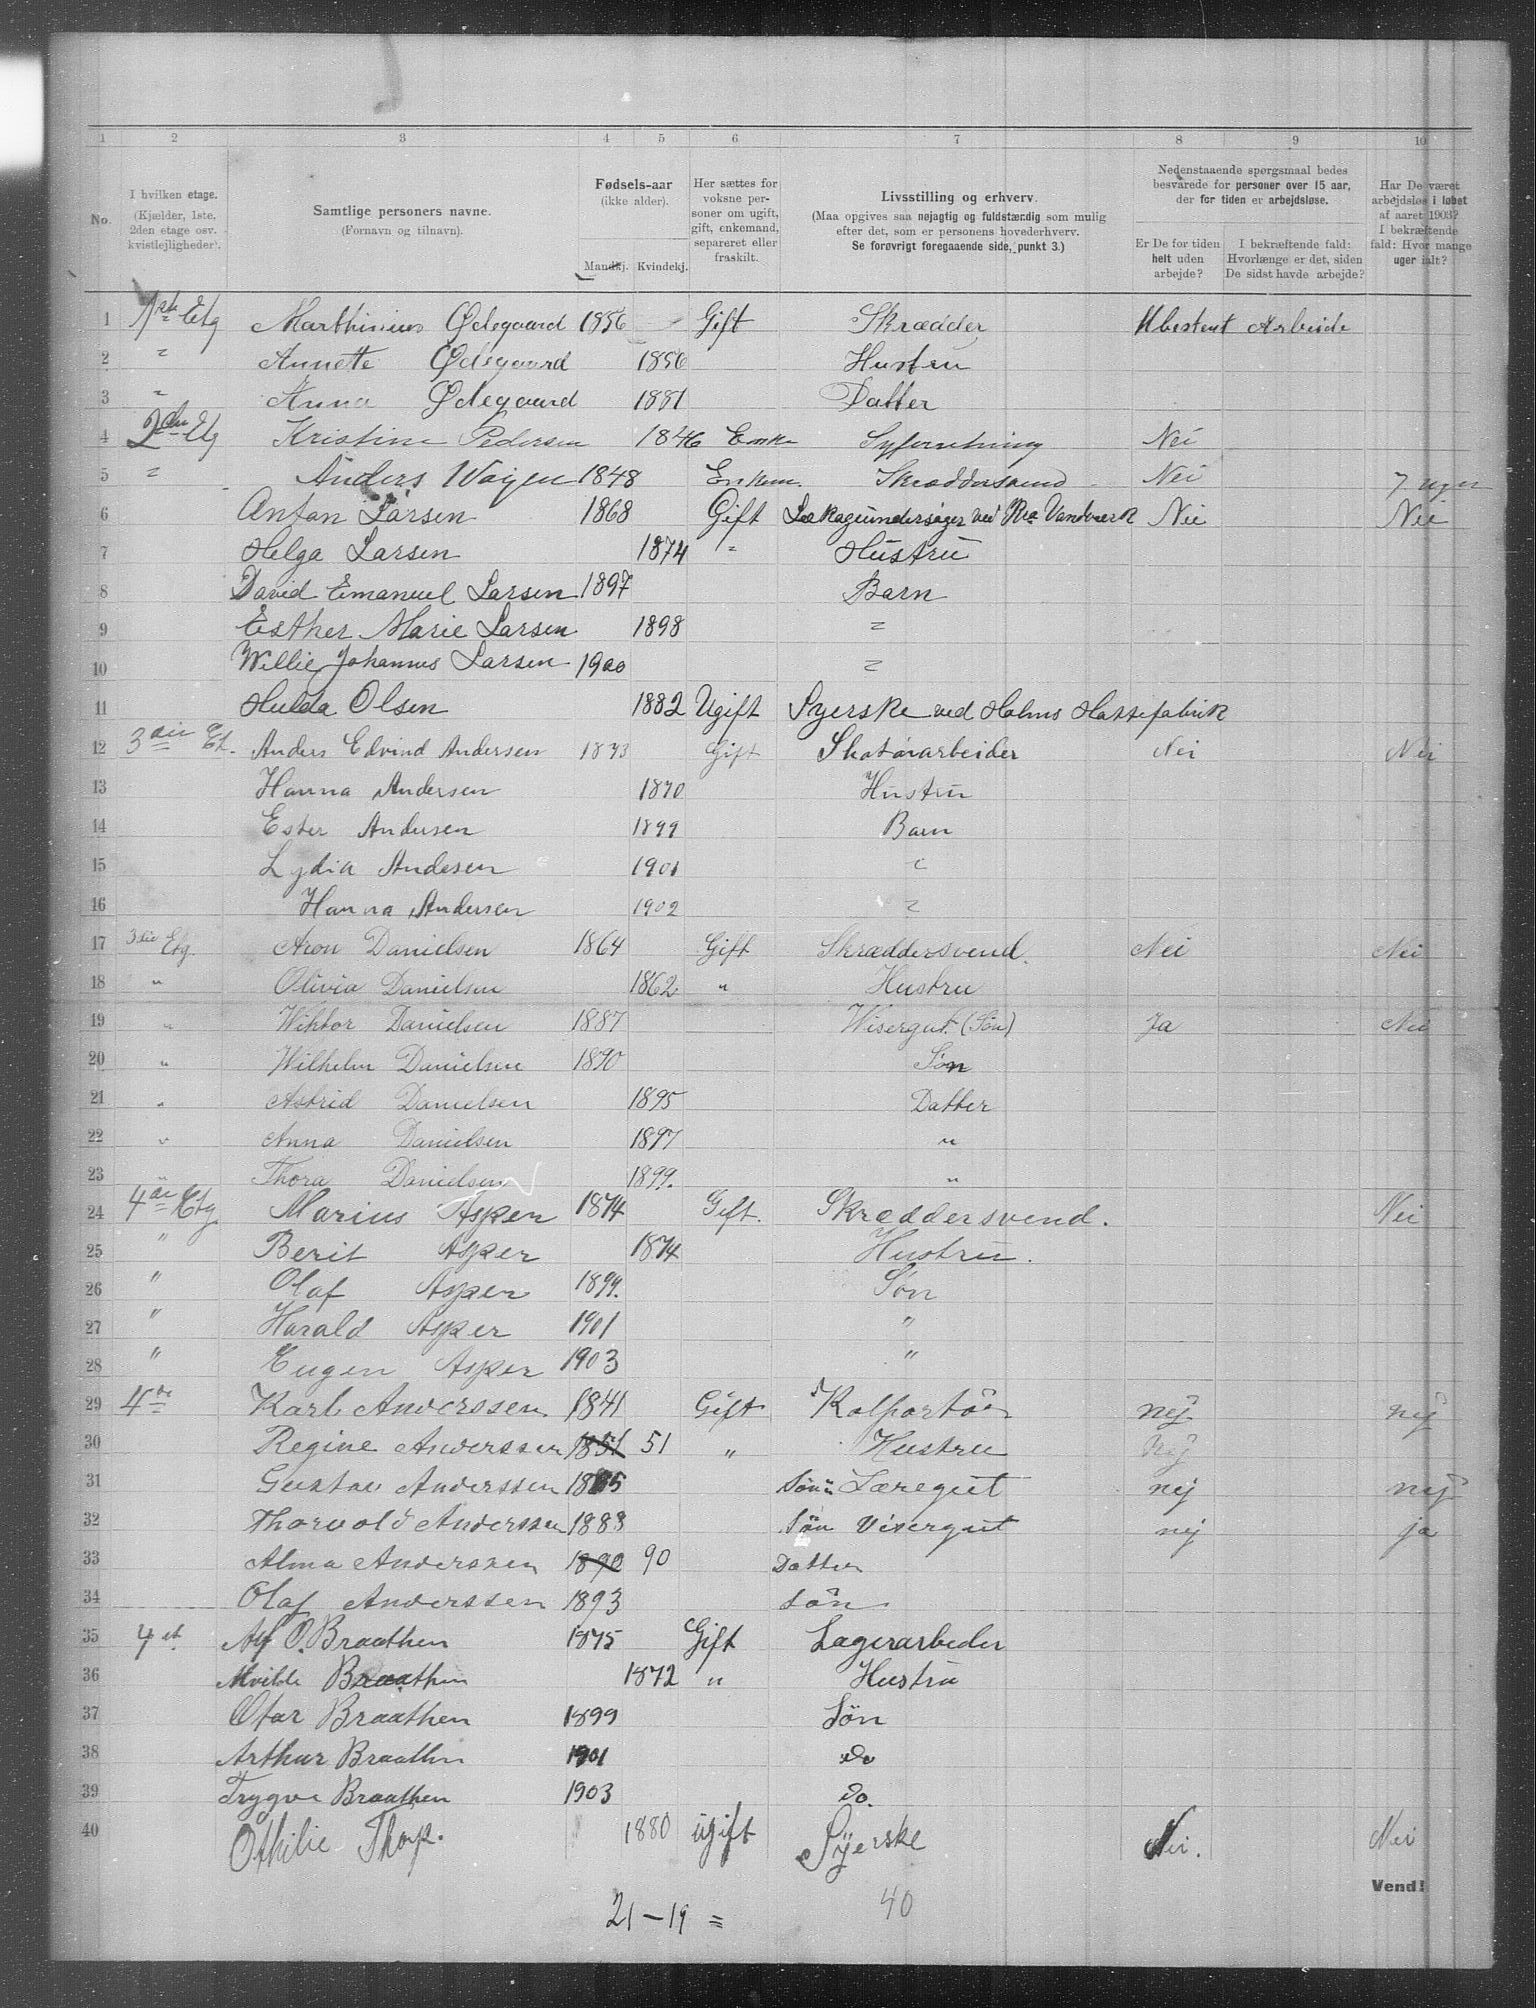 1 2 3 4 5 6 7 8 9 10
No.
I hvilken etage. (Kjælder, 1ste, 2den etage osv. kvistlejligheder).
Samtlige personers navne. (Fornavn og tilnavn).
Fødsels-aar (ikke alder). Mandkj. Kvindekj.
Her sættes for voksne personer om ugift, gift, enkemand, separeret eller fraskilt.
Livsstilling og erhverv. (Maa opgives saa nøjagtig og fuldstændig som mulig efter det, som er personens hovederhverv. Se forøvrigt foregaaende side, punkt 3.)
Nedenstaaende spørgsmaal bedes besvarede for personer over 15 aar, der for tiden er arbejdsløse.
Er De for tiden helt uden arbejde?
I bekræftende fald: Hvorlænge er det, siden De sidst havde arbejde?
Har De været arbejdsløs i løbet af aaret 1903? I bekræftende fald: Hvor mange uger ialt?
1 1ste Etg Marthinius Ødegaard 1856 Gift Skrædder Ubestent Arbeide
2 " Annette Ødegaard 1856 Hustru
3 " Anna Ødegaard 1881 Datter
4 2den Etg Kristine Pedersen 1846 Enke Syforretning Nei
5 " Anders Wøien 1848 Enkem. Skræddersvend Nei 7 uger
6 Anton Larsen 1868 Gift Lækageundersøger ved Kra Vandværk Nei Nei
7 Helga Larsen 1874 " Hustru
8 David Emanuel Larsen 1897 Barn
9 Esther Marie Larsen 1898 "
10 Willie Johannes Larsen 1900 "
11 Hulda Olsen 1882 Ugift Syerske ved Holms Hattefabrik
12 3die Et. Anders Edvind Andersen 1873 Gift Skotøiarbeider Nei Nei
13 Hanna Andersen 1870 Hustru
14 Ester Andersen 1899 Barn
15 Lydia Andesen 1901 "
16 Hanna Andersen 1902 "
17 3die Etg. Aron Danielsen 1864 Gift Skræddersvend. Nei Nei
18 " Olivia Danielsen 1862 " Hustru
19 " Wiktor Danielsen 1887 Wisergut (Søn) Ja Nei
20 " Wilhelm Danielsen 1890 Søn
21 " Astrid Danielsen 1895 Datter
22 " Anna Danielsen 1897 "
23 " Thora Danielsen 1899. "
24 4de Etg. Marius Asper 1874 Gift. Skræddersvend. Nei
25 " Berit Asper 1874 Hustru.
26 " Olaf Asper 1899. Søn
27 " Harald Asper 1901 "
28 " Eugen Asper 1903 "
29 4de Karl Anderssen 1841 Gift Kolportør nej nej
30 Regine Anderssen 1851 51 " Hustru nej
31 Gustav Anderssen 1885 Søn Læregut nej nej
32 Thorvald Anderssen 1888 Søn Visergut nej ja
33 Alma Anderssen 1890 90 Datter
34 Olaf Anderssen 1893 Søn
35 4 et. Alf O. Braathen 1875 Gift Lagerarbeder
36 Braathen 1872 " Hustru
37 Otar Braathen 1899 Søn
38 Arthur Braathen 1901 do
39 Trygve Braathen 1903 do.
40 Othilie Thorp. 1880 ugift Syerske Nei. Nei
Vend!
21 – 19 = 40